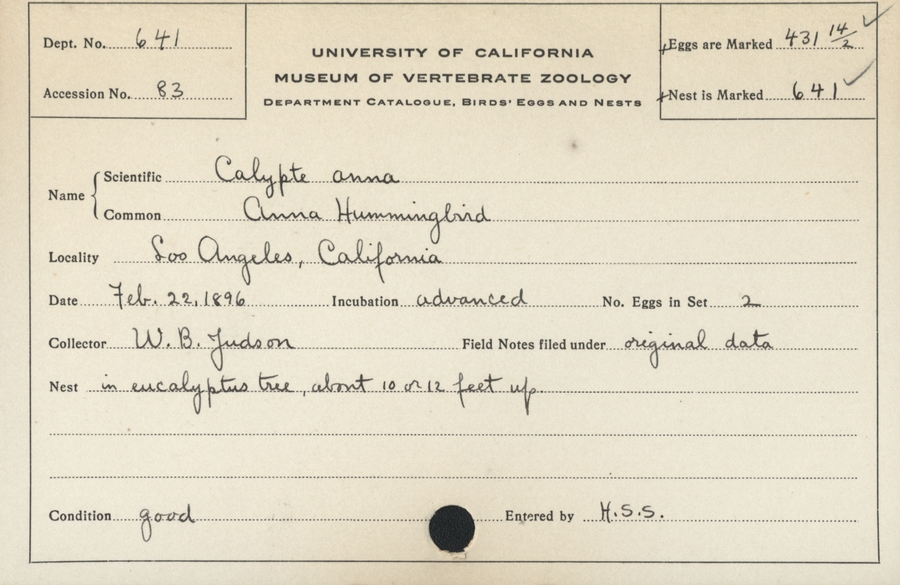 Dept. No. 641
Accession No. 83
UNIVERSITY OF CALIFORNIA
MUSEUM OF VERTEBRATE ZOOLOGY
DEPARTMENT CATALOGUE, BIRDS' EGGS AND NESTS
Eggs are Marked 431 14/2
Nest is Marked 641
Name
Scientific Calypte anna
Common Anna Hummingbird
Locality Los Angeles, California
Date Feb. 22, 1896 Incubation advanced No. Eggs in Set 2
Collector W. B. Judson Field Notes filed under original data
Nest in eucalyptus tree, about 10 or 12 feet up
Condition good Entered by H.S.S.